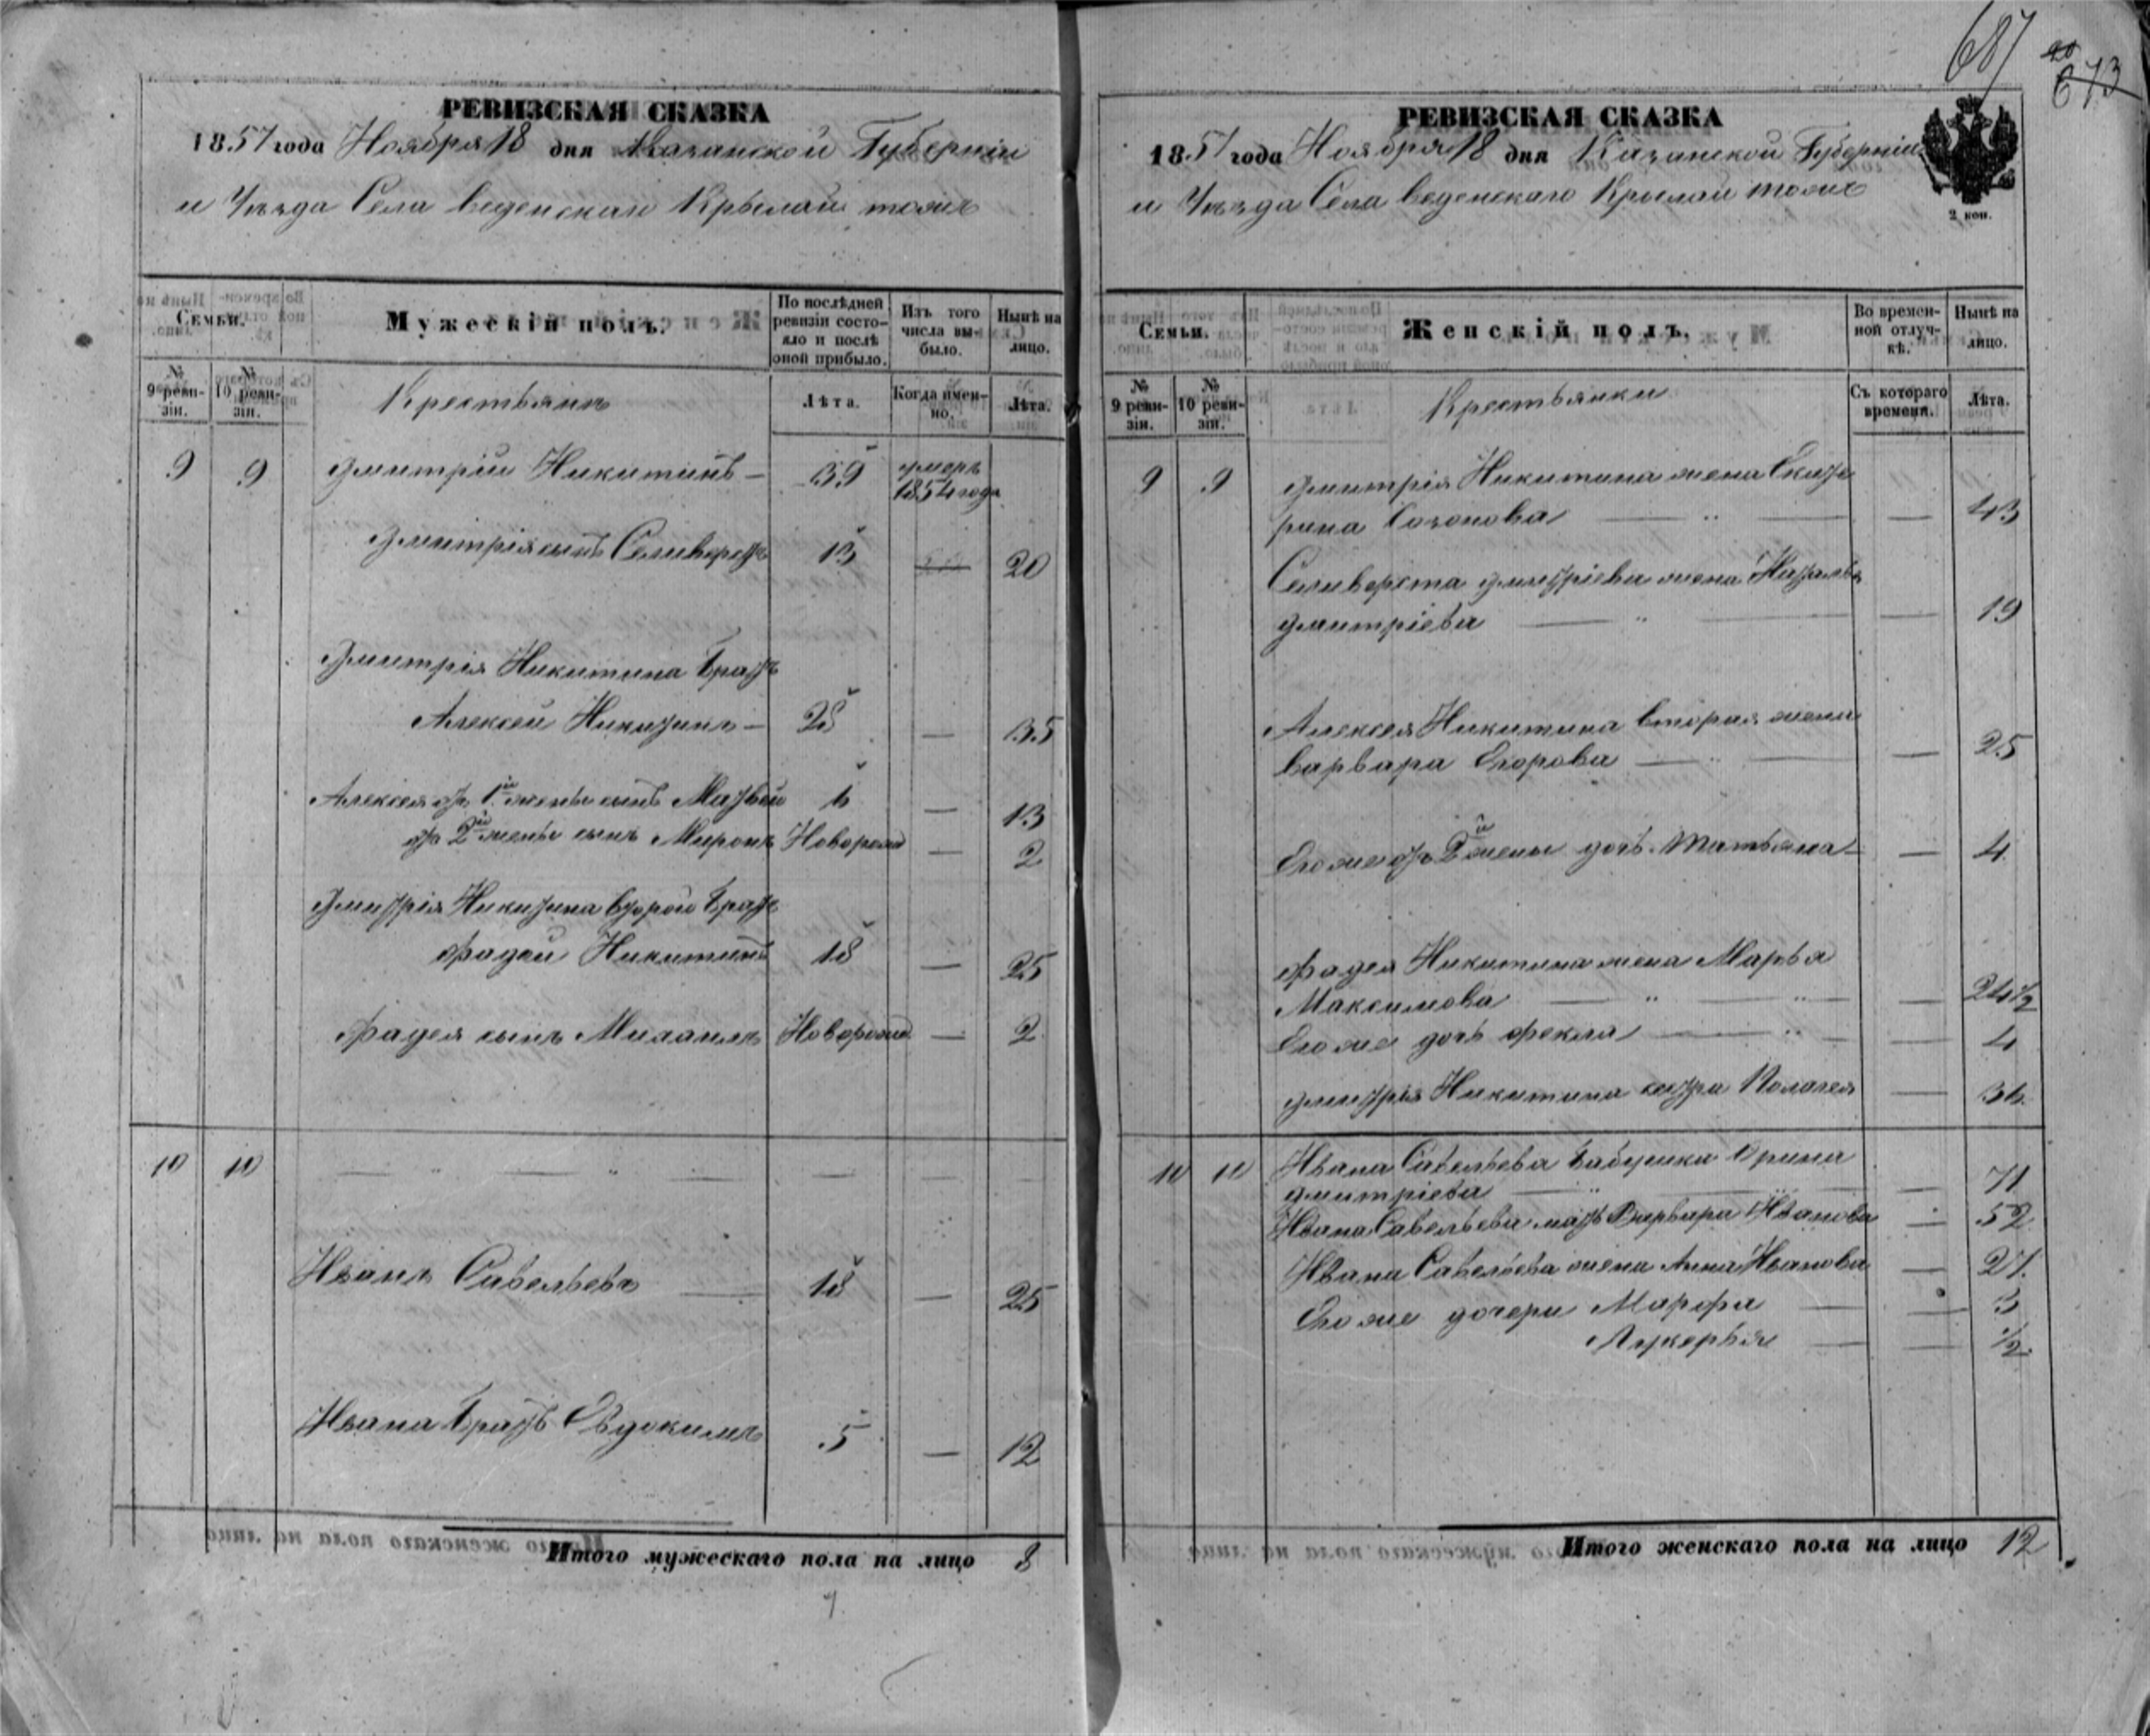 687
673
РЕВИЗСКАЯ СКАЗКА
1857 года Ноября 18 дня Казанской Губерніи
и Уѣзда Села Веденскаго Крылай тожъ
Семьи.
Мужескій полъ.
По послѣдней ревизіи состояло и послѣ оной прибыло.
Изъ того числа выбыло.
Нынѣ на лицо.
№ 9 ревизіи.
№ 10 ревизіи.
Крестьянъ
Лѣта.
Когда именно.
Лѣта.
9 9 Дмитрій Никитинъ — 39 умеръ 1854 года
Дмитрія сынъ Селиверстъ 13 — 20
Дмитрія Никитина братъ
Алексей Никитинъ — 28 — 35
Алексея отъ 1й жены сынъ Матвей 6 — 13
отъ 2й жены сынъ Миронъ Новорожд — 2
Дмитрія Никитина второй братъ
Фадей Никитинъ 18 — 25
Фадея сынъ Михаилъ Новорожд — 2
10 10 — " — " — — — —
Иванъ Савельевъ — 18 — 25
Ивана братъ Овдокимъ 5 — 12
Итого мужескаго пола на лицо 8
РЕВИЗСКАЯ СКАЗКА
1857 года Ноября 18 дня Казанской Губерніи
и Уѣзда Села Веденскаго Крылай тожъ
2 коп.
Семьи.
Женскій полъ.
Во временной отлучкѣ.
Нынѣ на лицо.
№ 9 ревизіи.
№ 10 ревизіи.
Крестьянки
Съ котораго времени.
Лѣта.
9 9 Дмитрія Никитина жена Екате
рина Созонова — " — — 43
Селиверста Дмитріева жена Наталья
Дмитріева — " — — 19
Алексея Никитина вторая жена
Варвара Егорова — " — — 25
Его же отъ 2й жены дочь Татьяна — — 4
Фадея Никитина жена Марья
Максимова — " — " — — 24½
Его же дочь Фекла — " — — 4
Дмитрія Никитина сестра Полагея — 36
10 10 Ивана Савельева бабушка Орина
Дмитріева — " — — 71
Ивана Савельева мать Варвара Иванова — 52
Ивана Савельева жена Анна Иванова — 27
Его же дочери Марфа — — 3
Лукерья — — ½
Итого женскаго пола на лицо 12